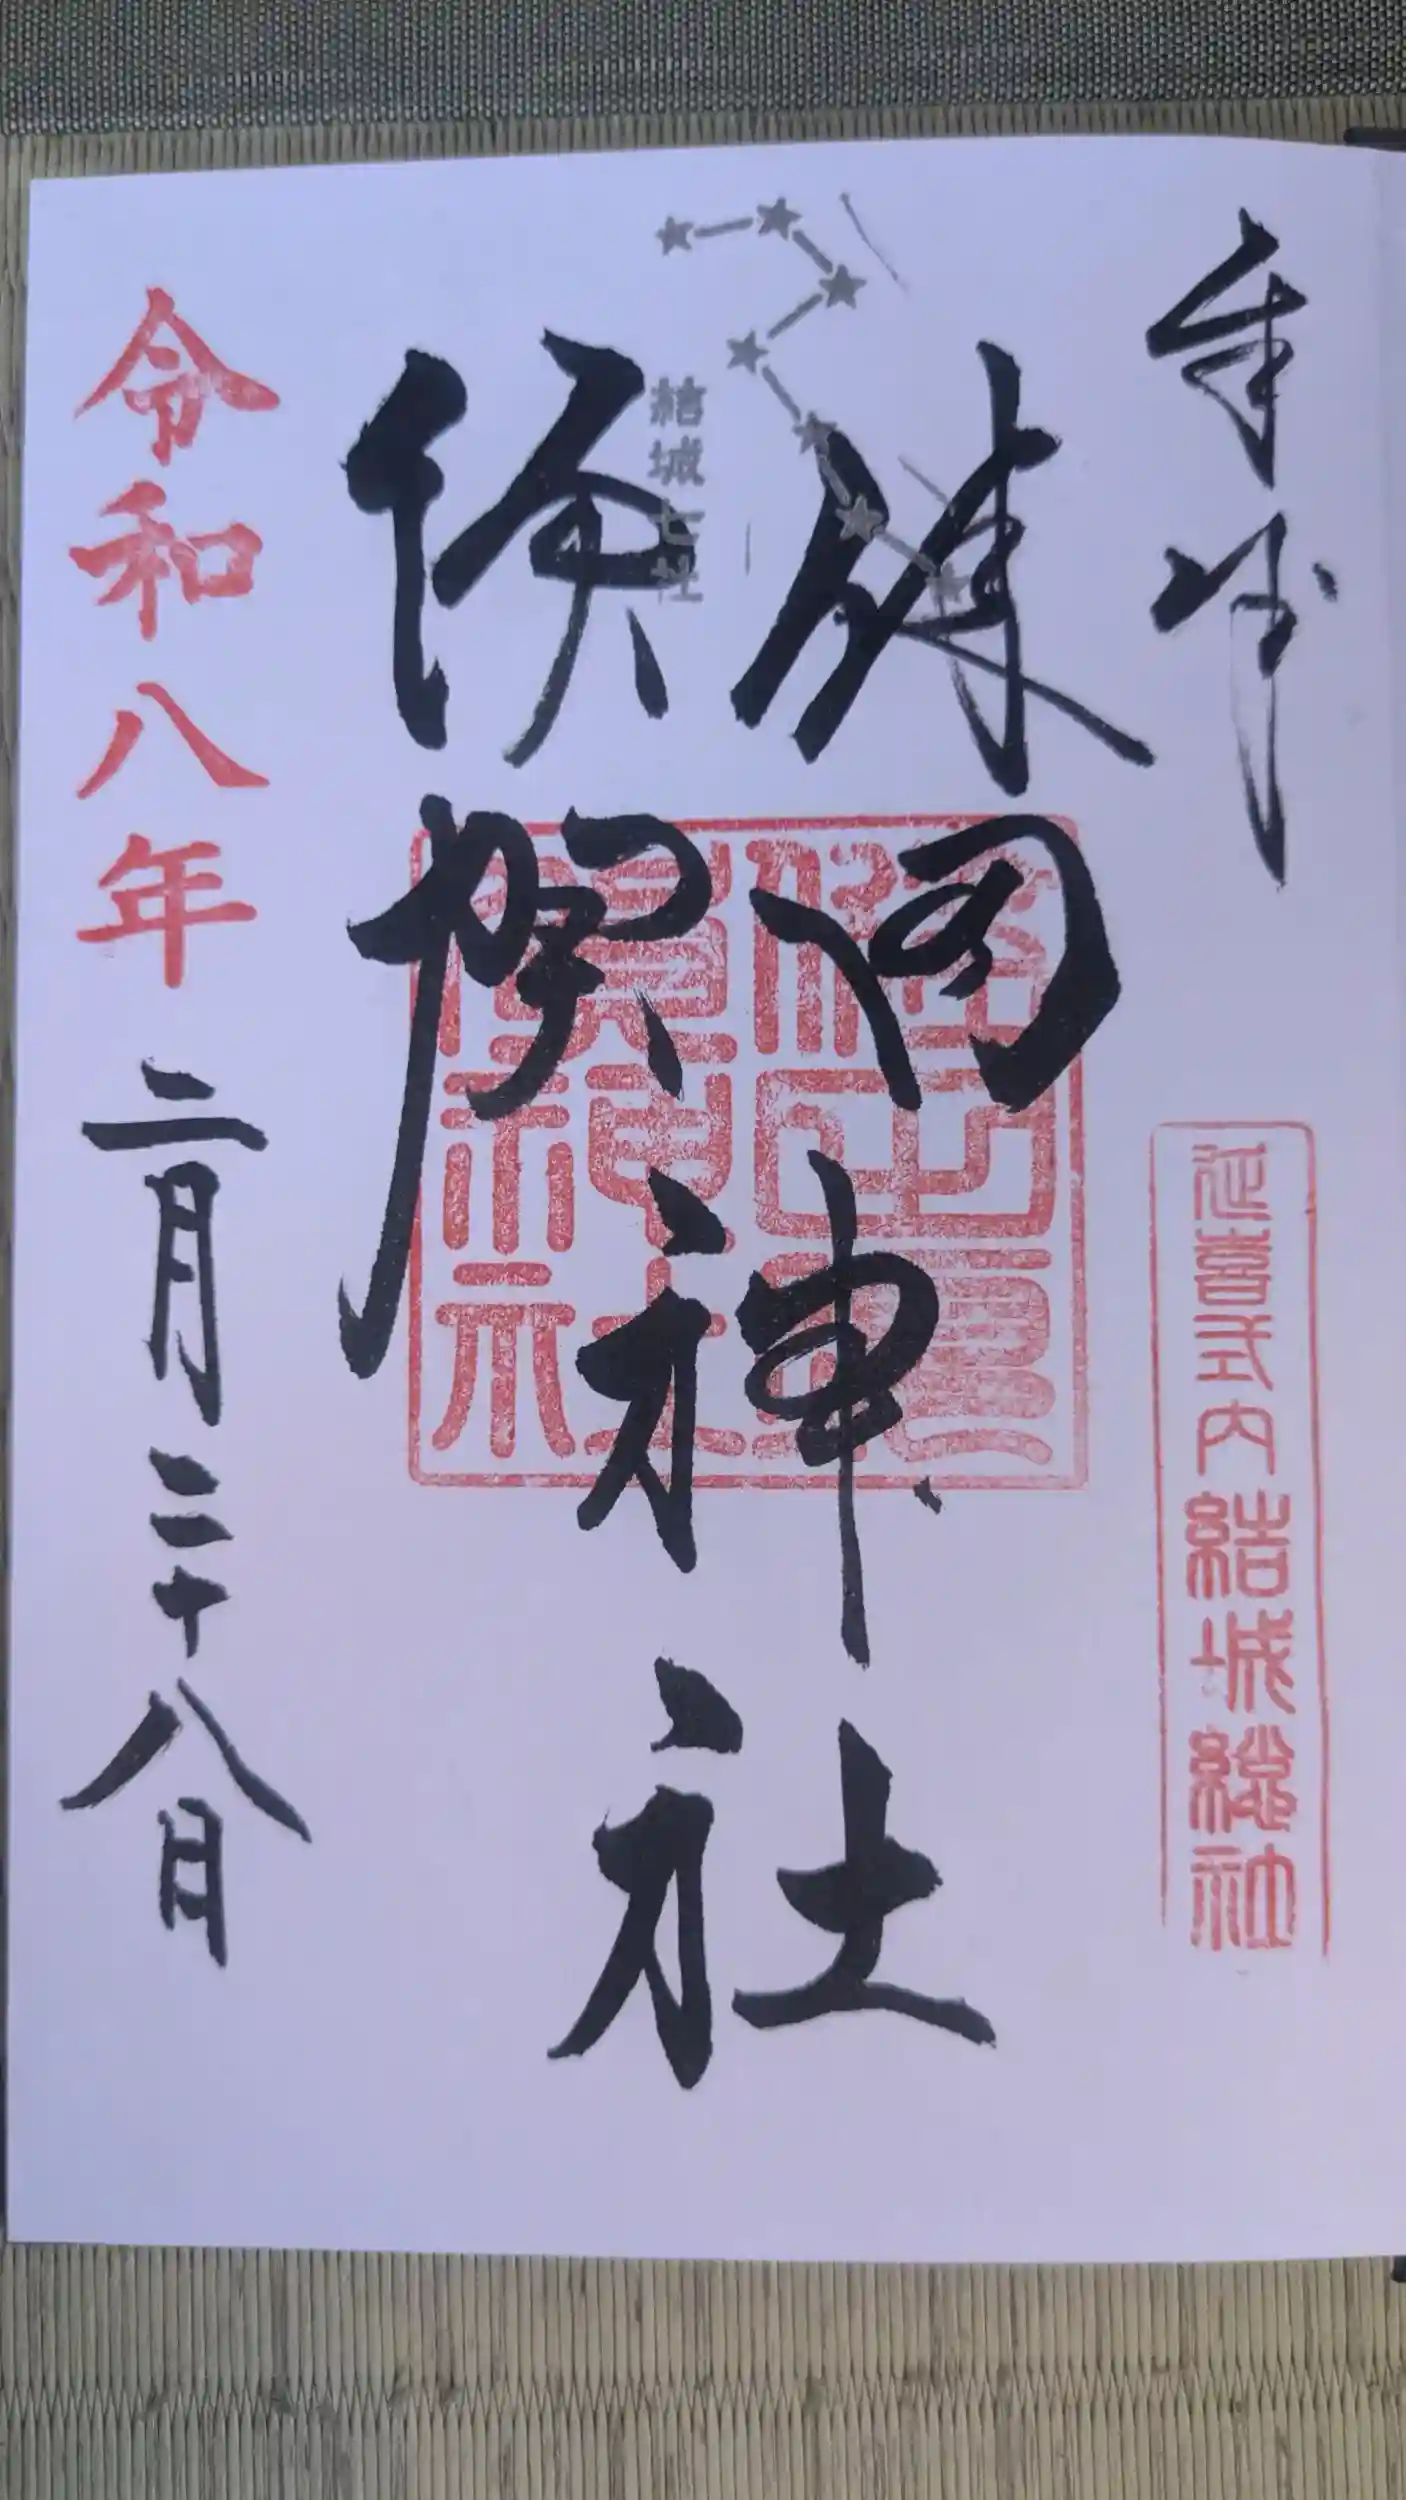 奉拝
延喜式内結城総社
結城七社
健田
須賀
神社
健田須
賀神社
令和八年二月二十八日